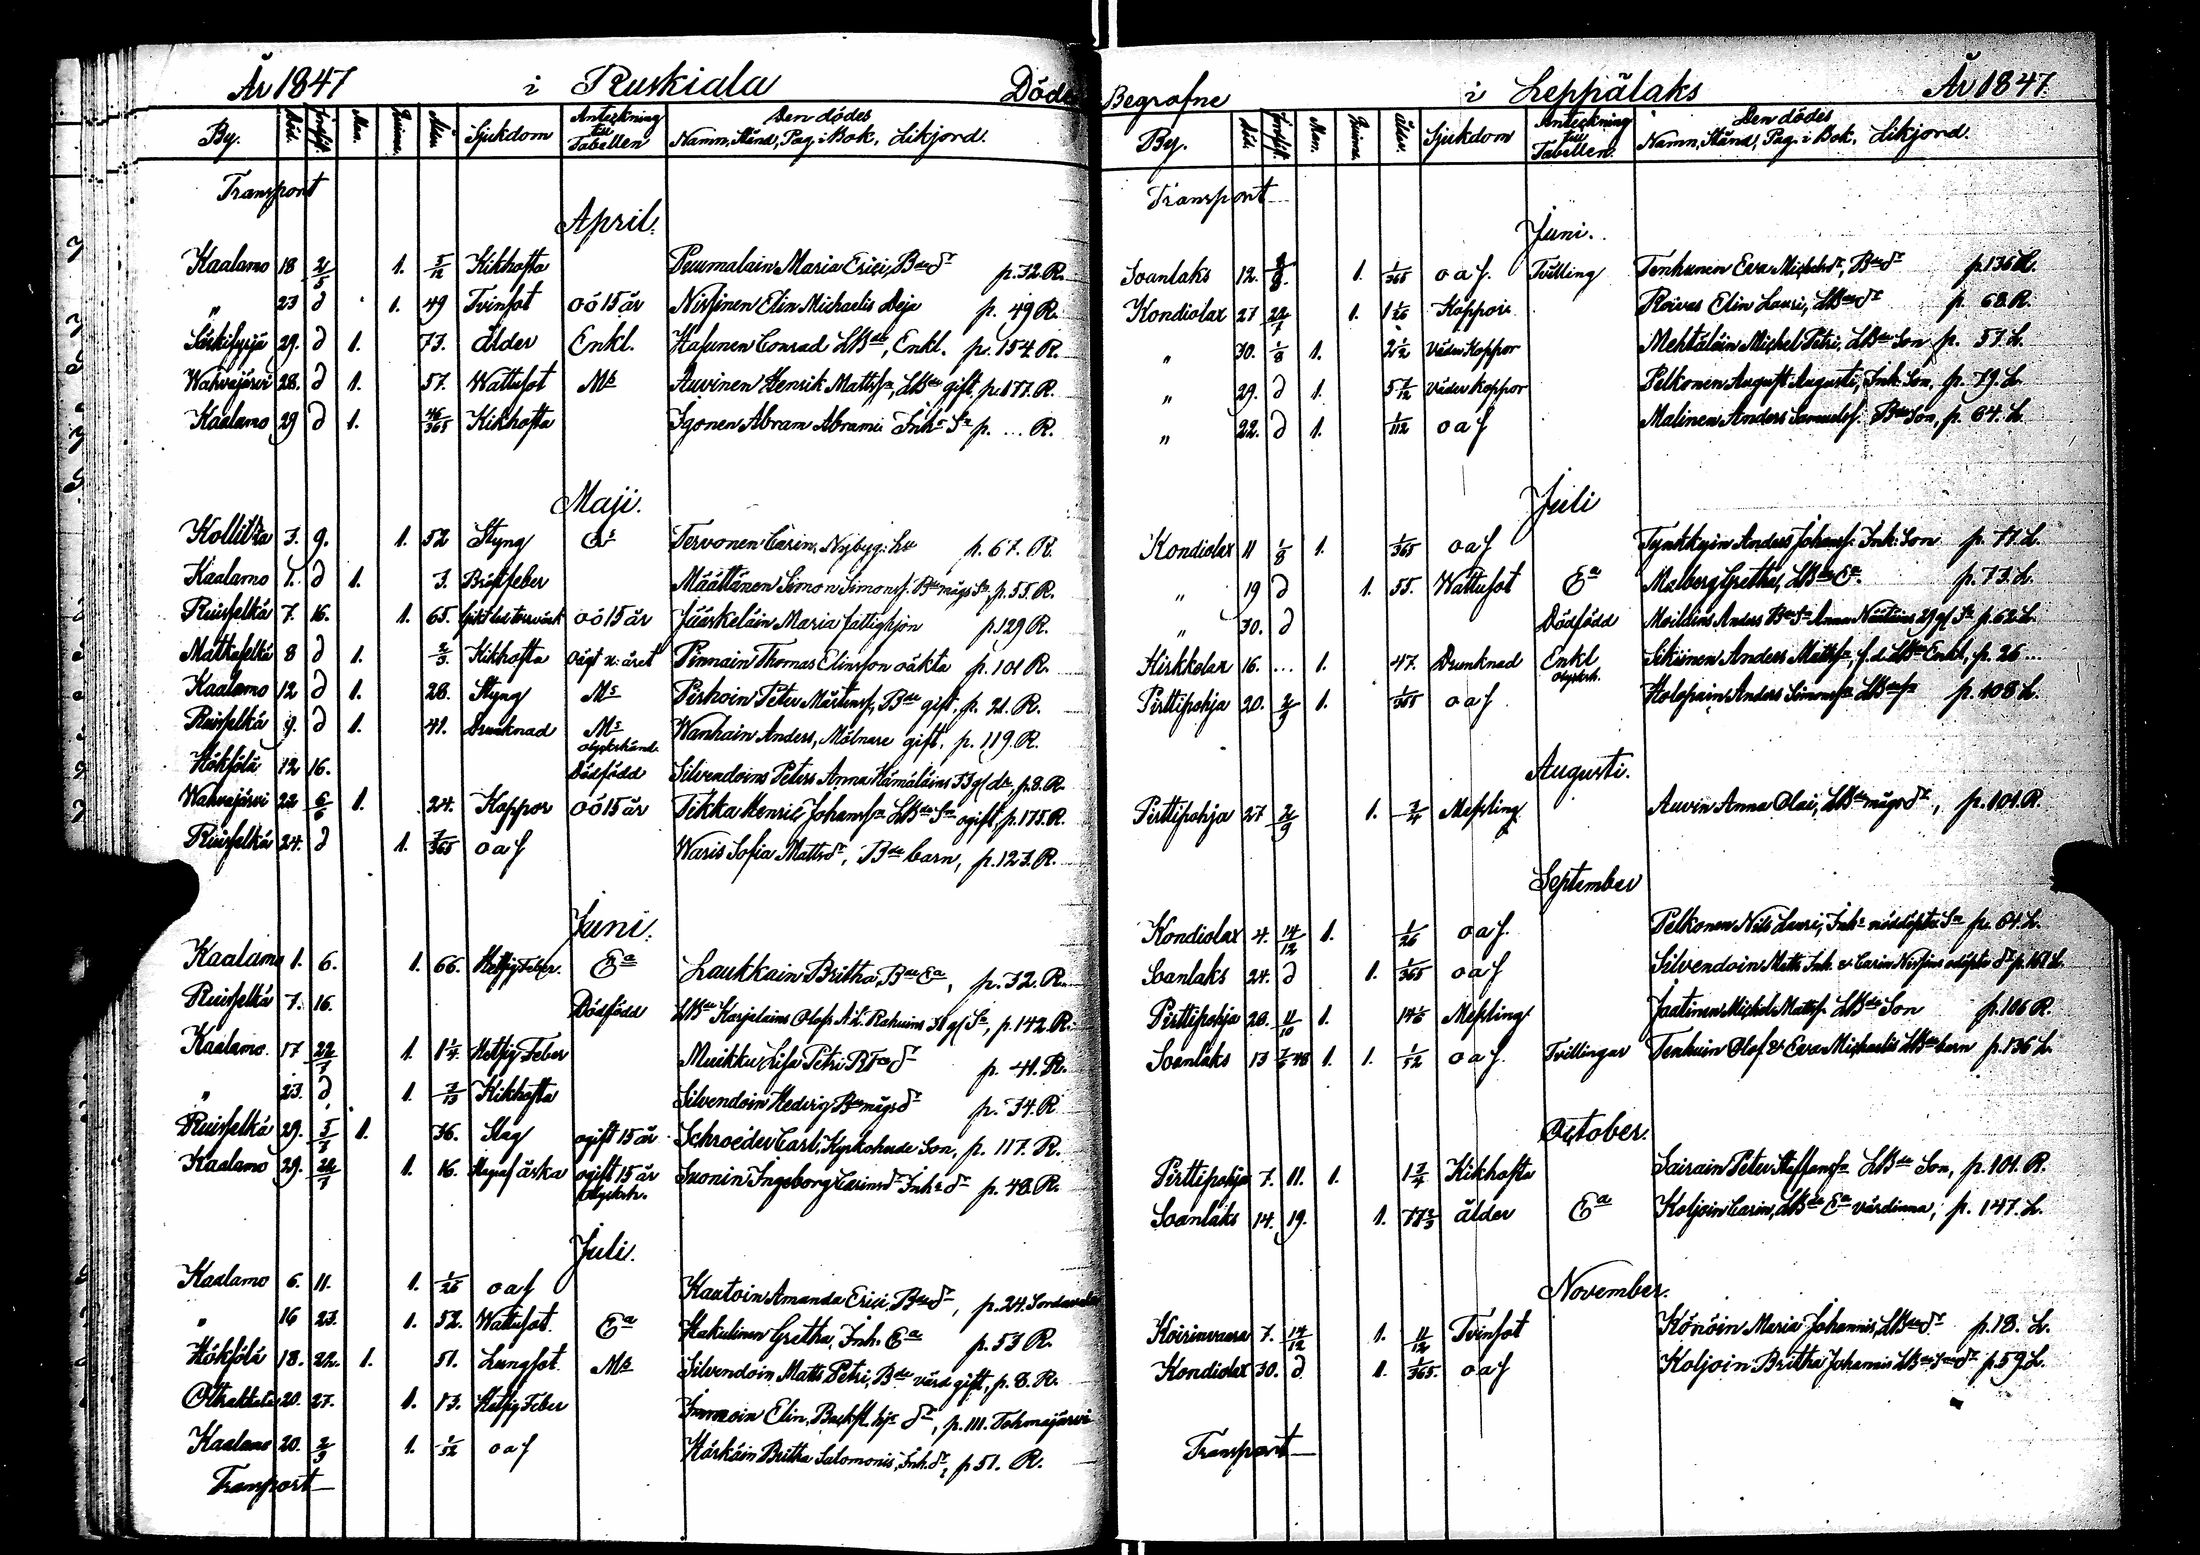 År 1847 i Ruskiala Döde
By. Död. Jordfäst. Man. Quinna. Ålder. Sjukdom Anteckning till Tabellen Den dödes Namn, Stånd, Pag. i Bok, Likjord.
Transport
April.
Kaalamo 18 2/5 1. 5/12 Kikhosta Puumalain Maria Erici, Bde dr p. 32. R.
" 23 d 1. 49 Tvinsot oö 15 år Nissinen Elin Michaelis Deja p. 49 R.
29. d 1. 73. ålder Enkl. Hasunen Conrad LBde, Enkl. p. 154 R.
Wahvajärvi 28. d 1. 57. Wattusot Ms Auvinen Henrik Mattss, LBde gift, p. 177. R.
Kaalamo 29 d 1. 46/365 Kikhosta Igonen Abram Abrami Inhs Sn p. ... R.
Maji.
Kollitka 3. 9. 1. 52 Styng Tervonen Carin, Nybyg. p. 67. R.
Kaalamo 7. d 1. 3. Bröstfeber Määttänen Simon Simonss. Bde mågs Sn, p. 55. R.
Ruisselkä 7. 16. 1. 65. oö 15 år Jääskeläin Maria fattighjon p. 129 R.
Matkaselkä 8 d 1. 2/3. Kikhosta oägt u. året Pinnain Thomas Elinsson oäkta p. 101 R.
Kaalamo 12 d 1. 28. Styng Ms Pirhoin Peter Mårtenss, Bde gift. p. 21. R.
Ruisselkä 9. d 1. 41. Drunknad Ms olyckshänd. Wanhain Anders, Mölnare gift. p. 119. R.
Höksölä 12 16. Dödfödd Silvendoins Peters Anna Hämäläins 33 g/ dr. p. 8. R.
Wahvajärvi 22 6/6 1. 24. Koppor oö 15 år Tikka Henric Johanss LBde Sn ogift, p. 175. R.
Ruisselkä 24. d 1. 7/365 oaf Waris Sofia Mattsdr, Bde barn, p. 123. R.
Juni.
Kaalamo 1. 6. 1. 66. Hetsig Feber. Ea Laukkain Britha, Bde Ea, p. 32. R.
Ruisselkä 7. 16. Dödfödd LBde Karjalains Olofs A.L. Rahuins 31 g/ Sn, p. 142. R.
Kaalamo. 17 22/7 1. 1 1/4. Hetsig Feber Muikku Lisa Petri dr p. 41. R.
" 23. d 1. 7/13 Kikhosta Silvendoin Hedvig Bde mågs dr p. 34. R
Ruisselkä 29. 5/7 1. 36. Slag ogift 15 år Schroeder Carl, Kyrkoherde Son, p. 117. R.
Kaalamo 29. 22/7 1. 16. Slagaf åska ogift 15 år olycksh. Suonin Ingeborg Carinsdr Inhs dr p. 48. R.
Juli.
Kaalamo 6. 11. 1. 1/26 oaf Kaatoin Amanda Erici, Bde dr, p. 24. Sordavala
" 16 23. 1. 52. Wattusot. Ea Hakulinen Gretha, Inh. Ea p. 53 R.
Höksölä 18. 22. 1. 51. Lungsot. Ms Silvendoin Matts Petri, Bde värd gift, p. 8. R.
20. 27. 1. 13. Hetsig Feber Immoin Elin, Backst. hjs dr, p. 111. Tohmajärvi
Kaalamo 20. 2/9 1. 1/52 oaf Härkäin Britha Salomonis, Inh. dr, p 51. R.
Transport
Begrafne i Leppälaks År 1847.
By. Död. Jordfäst. Man. Quinna. Ålder. Sjukdom Anteckning till Tabellen. Den dödes Namn, Stånd, Pag. i Bok, Likjord.
Transport
Juni.
Soanlaks 12. 8/8. 1. 1/365 oaf. Tvilling Tenhunen Eva Michelsdr, Bde dr p. 136 L.
Kondiolax 27 22/7 1. 1 1/26 Koppor Roivas Elin Lauri, LBde dr p. 68. R.
" 30. 1/8 1. 2 1/2 Väder Koppor Mehtäläin Michel Petri, LBde Son p. 57. L.
" 29. d 1. 5 7/12 Väder Koppor Pelkonen August Augusti, Inh. Son, p. 79. L.
" 22. d 1. 1/112 oaf Malinen Anders Samuelss. Bde Son, p. 64. L.
Juli
Kondiolax 11 1/8 1. 1/365 oaf Tynkkyin Anders Johanss. Inh. Son p. 77. L.
" 19 d 1. 55. Wattusot Ea Malberg Gretha, LBde Ea. p. 73. L.
" 30. d Dödfödd Moilains Anders Anna Näätäins 29 g/ Sn p. 62. L.
Kirkkolax 16. ... 1. 47. Drunknad Enkl olycksh. Sikiönen Anders Mattss, f.d. LBde Enkl, p. 26 ...
Pirttipohja 20. 2/9 1. 1/365 oaf Holopain Anders Simonss LBde Sn p. 108 L.
Augusti.
Pirttipohja 27 2/9 1. 3/4 Messling Auvin Anna Olai, LBde mågs dr, p. 101. R.
September
Kondiolax 4. 14/12 1. 1/26 oaf. Pelkonen Nils Lauri, Inhs Sn p. 64. L.
Soanlaks 24. d 1. 1/365 oaf Silvendoin Matts Inh. & Carin Nissins dr p. 167 L.
Pirttipohja 26. 11/10 1. 14/5 Messling Jaatinen Michel Mattss. LBde Son p. 106 R.
Soanlaks 13 7/5 48 1. 1. 1/12 oaf. Tvillingar Tenhuin Olof & Eva Michaelis LBde barn p. 136 L.
October.
Pirttipohja 7. 11. 1. 1 3/4 Kikhosta Sairain Peter Staffanss LBde Son, p. 101. R.
Soanlaks 14. 19. 1. 77 2/3 ålder Ea Koljoin Carin, LBde Ea värdinna, p. 147. L.
November.
Koirinvaara 7. 14/12 1. 11/12 Tvinsot Könöin Maria Johannis, LBde dr p. 18. L.
Kondiolax 30. d 1. 1/365. oaf Koljoin Britha Johannis LBde Sons dr p. 59 L.
Transport